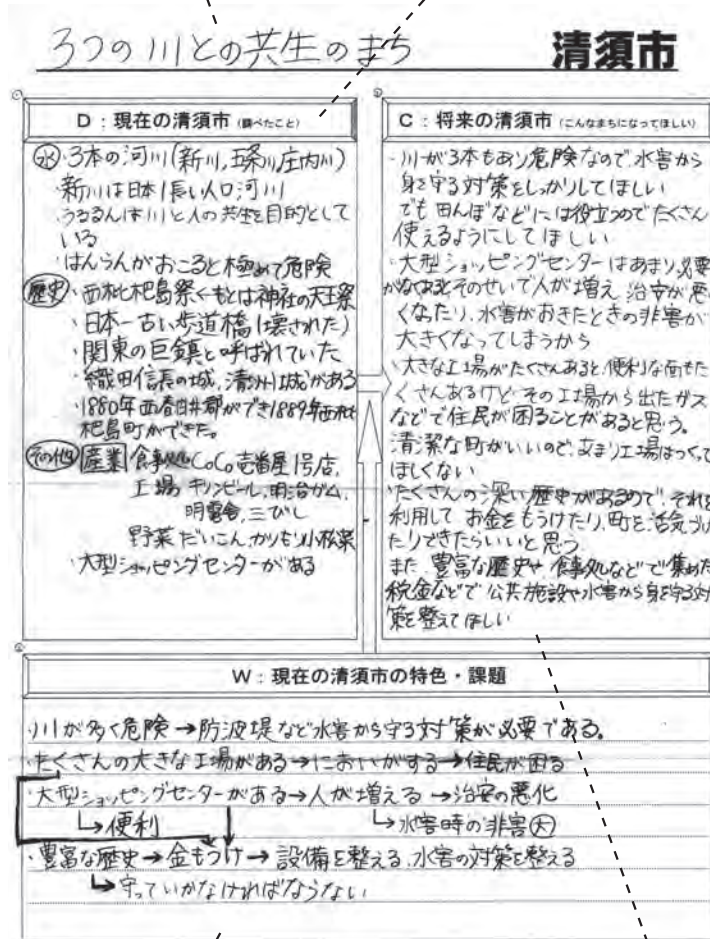 3つの川との共生のまち
清須市
D：現在の清須市（調べたこと）
水・3本の河川(新川,五条川,庄内川)
・新川は日本1長い人口河川
・うるるんは川と人の共生を目的として
いる
・はんらんがおこると極めて危険
歴史・西枇杷島祭←もとは神社の天王祭
・日本一古い歩道橋(壊された)
・関東の巨鎮と呼ばれていた
・織田信長の城、清洲城がある
・1880年西春日井郡ができ1889年西枇
杷島町ができた。
その他 産業 食事処 CoCo壱番屋1号店,
工場 キリンビール,明治ガム,
明電舎,三びし
野菜 だいこん,かりもり,小松菜
・大型ショッピングセンターがある
C：将来の清須市（こんなまちになってほしい）
・川が3本もあり危険なので、水害から
身を守る対策をしっかりしてほしい
でも 田んぼなどには役立つのでたくさん
使えるようにしてほしい
・大型ショッピングセンターはあまり必要
がなあるとそのせいで人が増え、治安が悪
くなったり、水害がおきたときの非害が
大きくなってしまうから
・大きな工場がたくさんあると、便利な面もた
くさんあるけど その工場から出たガス
などで住民が困ることがあると思う。
清潔な町がいいので、あまり工場はつくって
ほしくない
・たくさんの深い歴史があるので、それを
利用して お金をもうけたり、町を活気づけ
たりできたらいいと思う
また、豊富な歴史や食事処などで集めた
税金などで 公共施設や水害から身を守る対
策を整えてほしい
W：現在の清須市の特色・課題
・川が多く危険→防波堤など水害から守る対策が必要である。
・たくさんの大きな工場がある→においがする→住民が困る
・大型ショッピングセンターがある→人が増える→治安の悪化
↳便利
↳水害時の非害大
・豊富な歴史→金もうけ→設備を整える、水害の対策を整える
↳守っていかなければならない